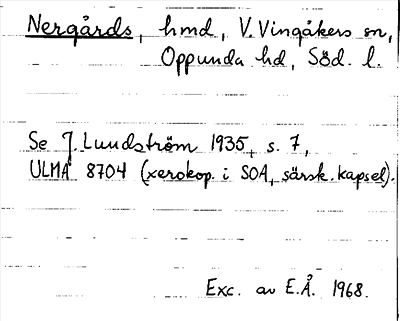 Nergårds, hmd, V. Vingåkers sn,
Oppunda hd, Söd. l.
Se J. Lundström 1935, s. 7,
ULMA 8704 (xerokop. i SOA, särsk. kapsel).
Exc. av E.Å. 1968.